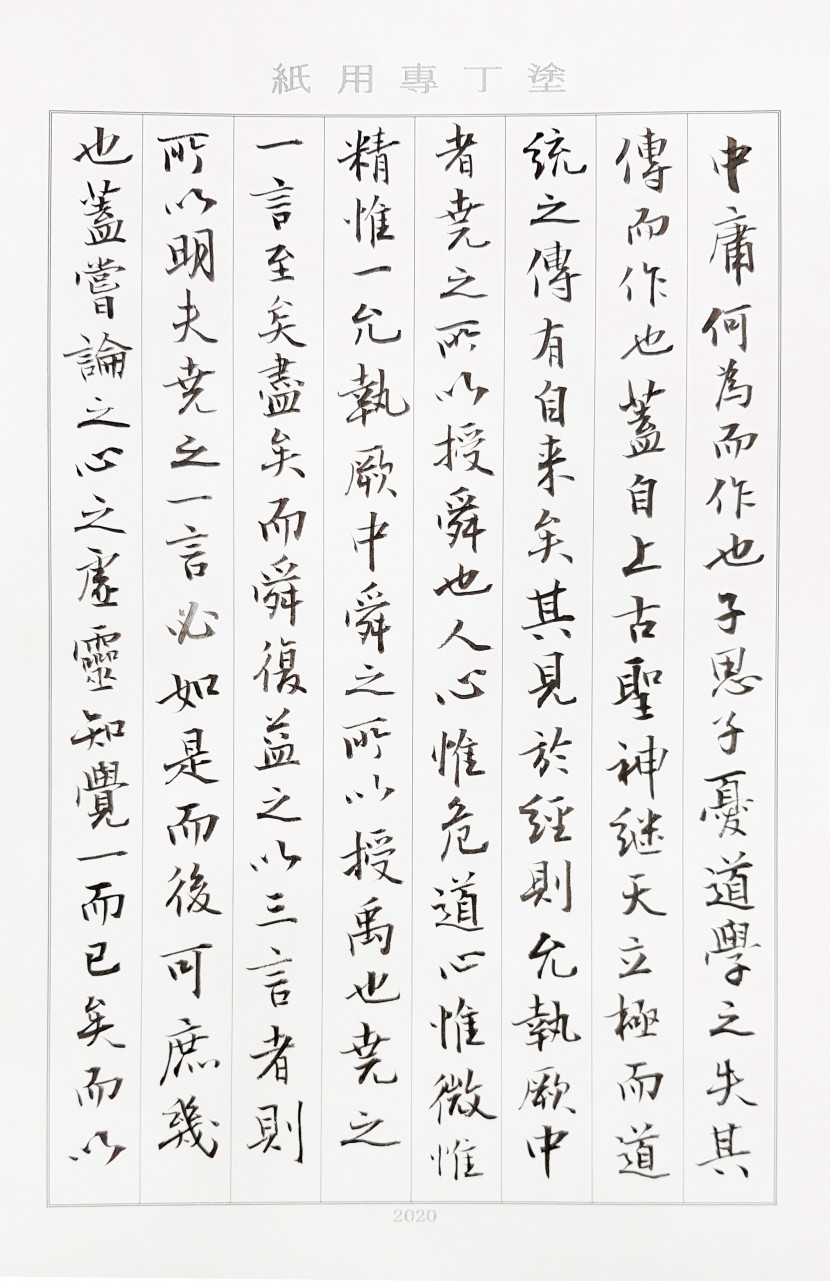 紙用專丁塗
中庸何為而作也子思子憂道學之失其
傳而作也蓋自上古聖神継天立極而道
統之傳有自来矣其見於經則允執厥中
者尭之所以授舜也人心惟危道心惟微惟
精惟一允執厥中舜之所以授禹也尭之
一言至矣盡矣而舜復益之以三言者則
所以明夫尭之一言必如是而後可庶幾
也蓋嘗論之心之虛靈知覺一而已矣而以
2020